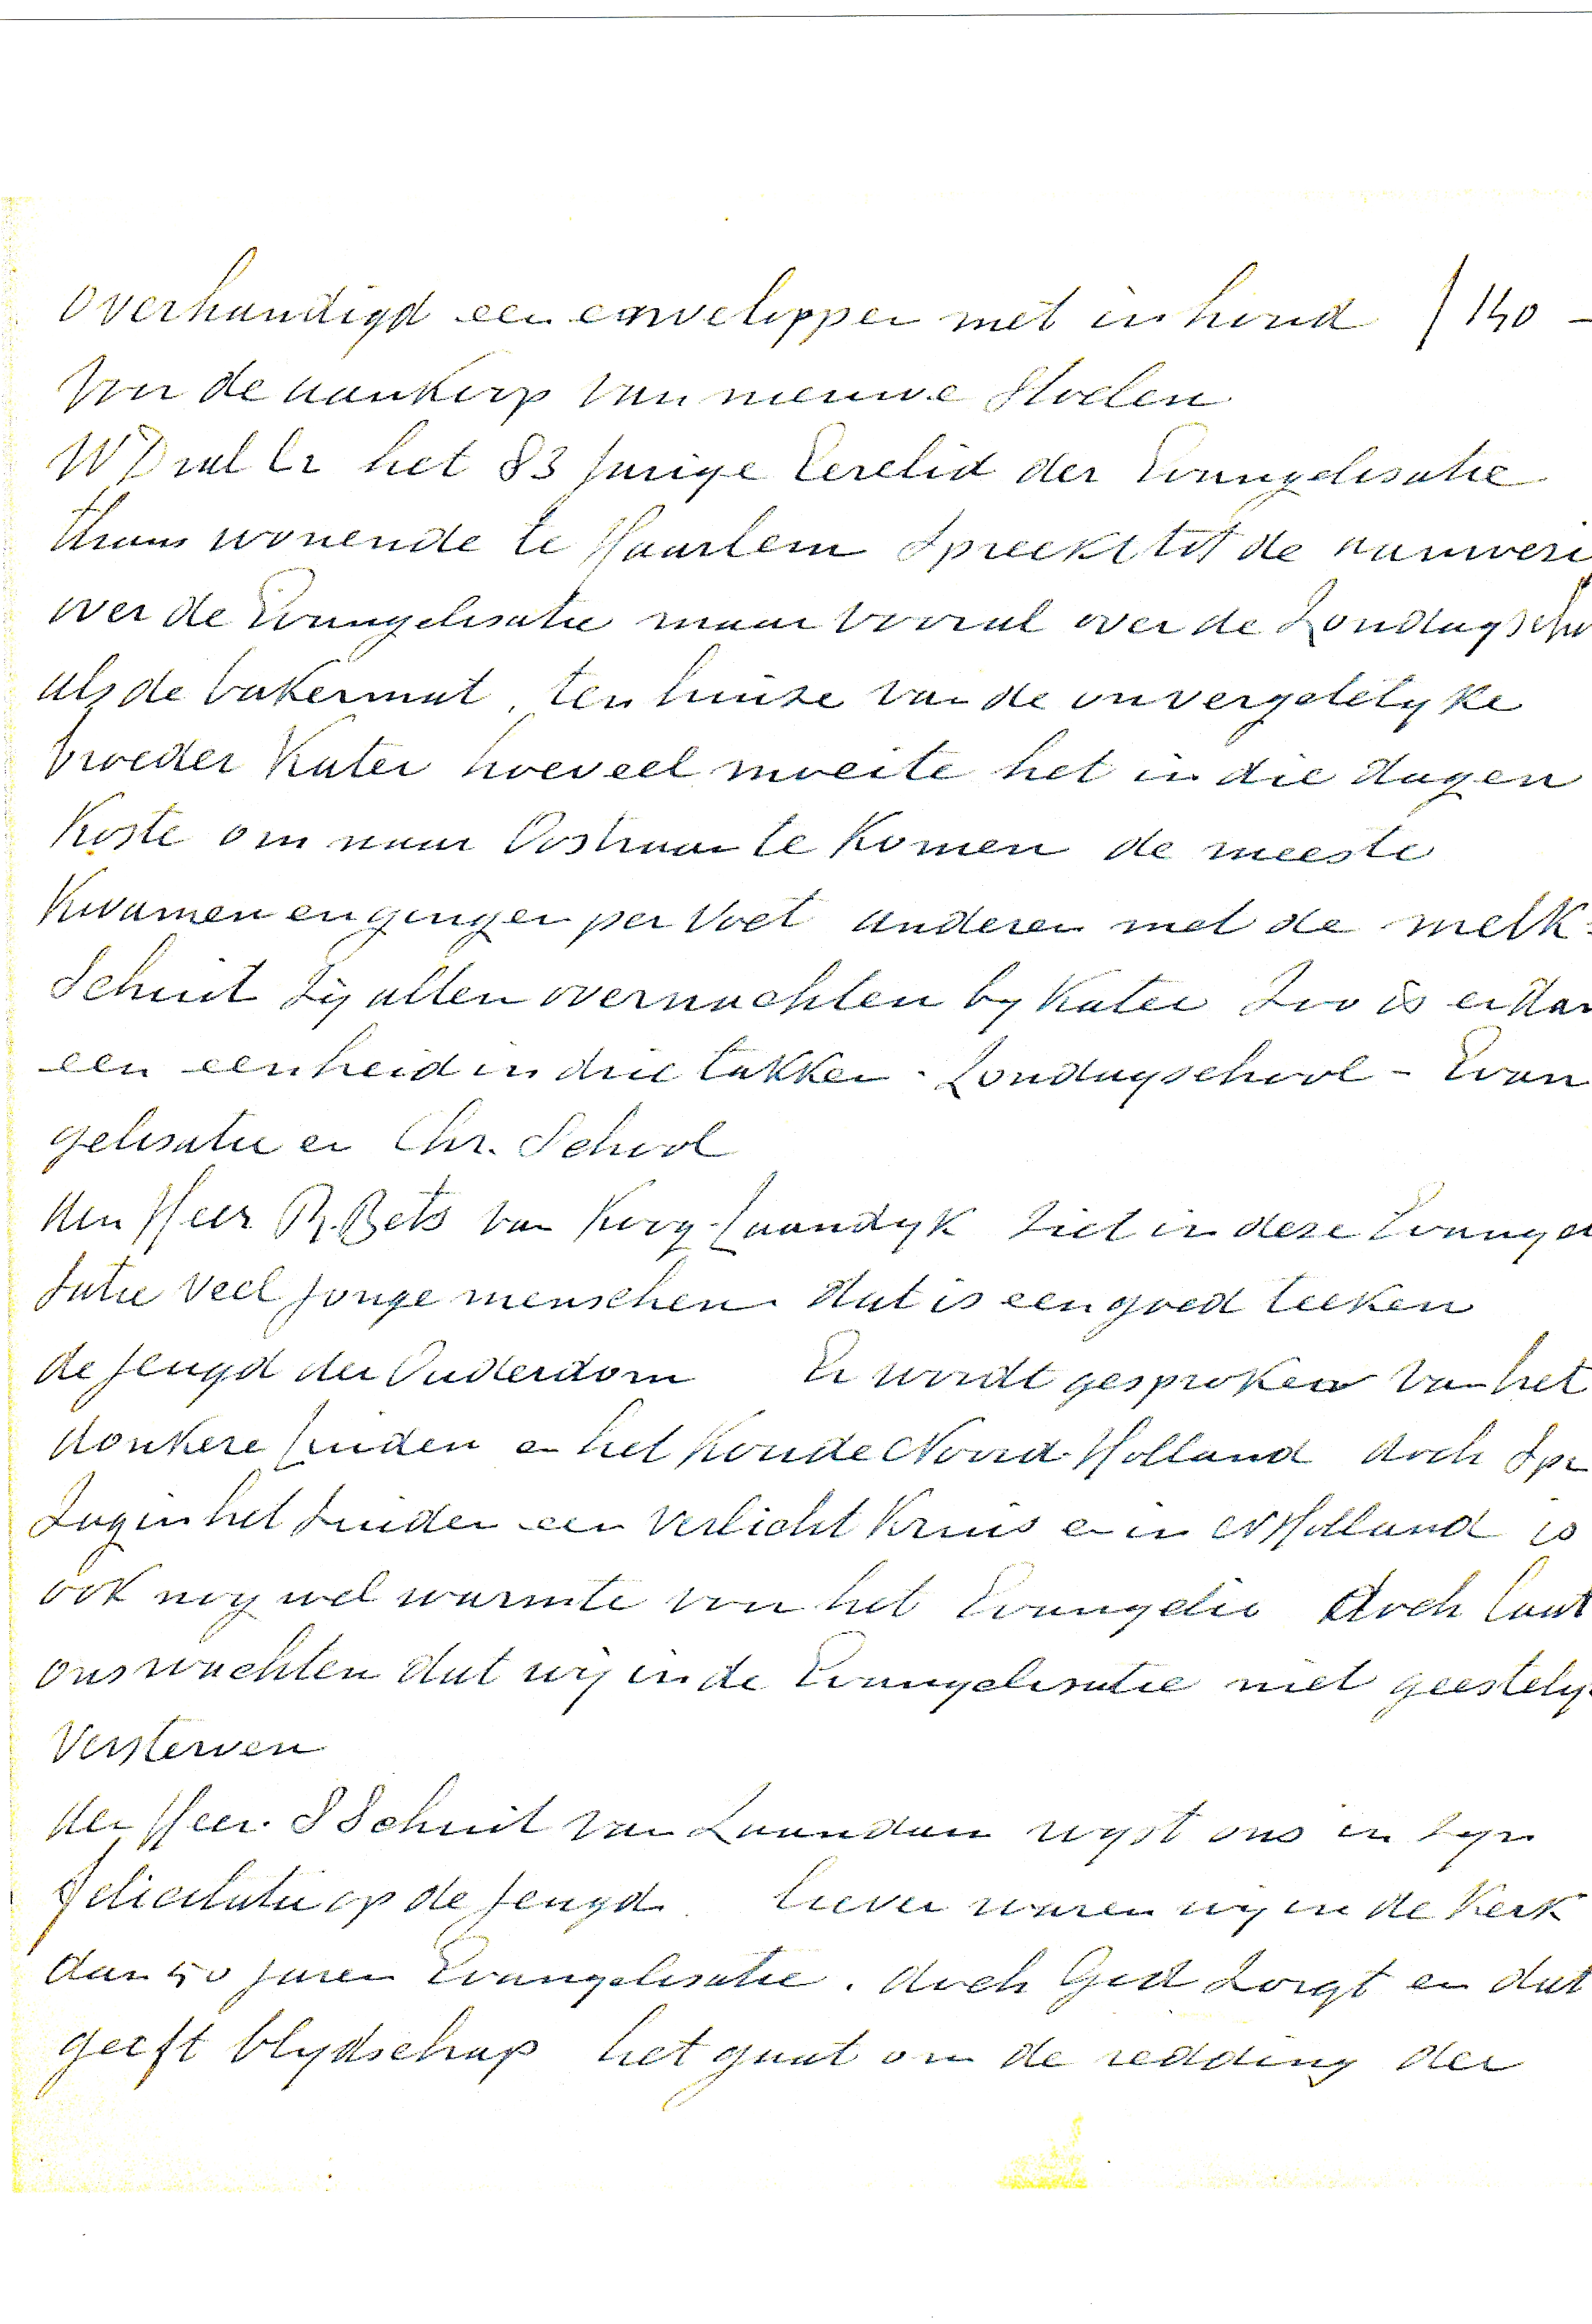 overhandigd een enveloppen met inhoud ƒ 140 -
voor de aankoop van nieuwe Stoelen
W Dral Cr het 83 Jarige Erelid der Evangelisatie
thans wonende te Haarlem Spreekt tot de aanwezi
over de Evangelisatie maar vooral over de Zondagscho
als de bakermat, ten huize van de onvergetelyke
broeder Kater hoeveel moeite het in die dagen
Koste om naar Oosthuizen te Komen de meeste
Kwamen en gingen per Voet anderen met de melk-
Schuit Zij allen overnachten by Kater Zoo is er dan
een eenheid in drie takken - Zondagschool - Evan
gelisatie en Chr. School
den Heer R. Bets van Koog-Zaandyk Ziet in deze Evangeli
Satie Veel Jonge menschen dat is een goed teeken
de Jeugd der Ouderdom Er wordt gesproken van het
donkere Zuiden en het Koude Noord-Holland doch Spr
Zag in het Zuiden een Verlicht Kruis en in N Holland is
ook nog wel warmte van het Evangelie doch laat
ons wachten dat wij in de Evangelisatie niet geestely
Versterven
den Heer. S Schuit van Zaandam wyst ons in Zyn
felicitatie op de Jeugd. liever waren wij in de Kerk
dan 50 Jaren Evangelisatie. doch God Zorgt en dat
geeft blydschap het gaat om de redding der